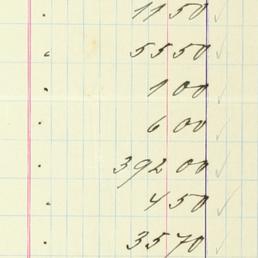 " 11 50
" 55 50
" 1 00
" 6 00
" 392 00
" 4 50
" 35 70